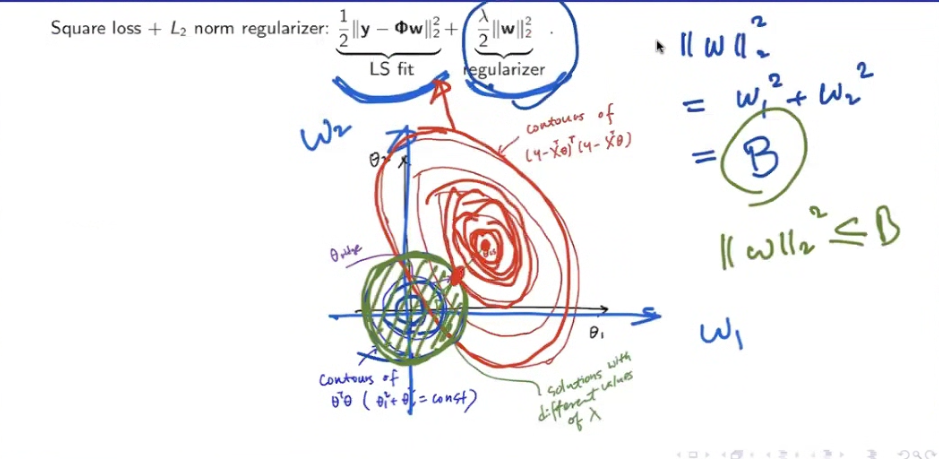 Square loss + L₂ norm regularizer: 1/2 ||y − Φw||₂² + λ/2 ||w||₂² .
LS fit
regularizer
||w||₂²
= w₁² + w₂²
= B
||w||₂² ≤ B
w₂
θ₂
contours of
(y-Xθ)ᵀ(y-Xθ)
θridge
θ₁
w₁
contours of
θᵀθ (θ₁²+θ₂² = const)
solutions with
different values
of λ